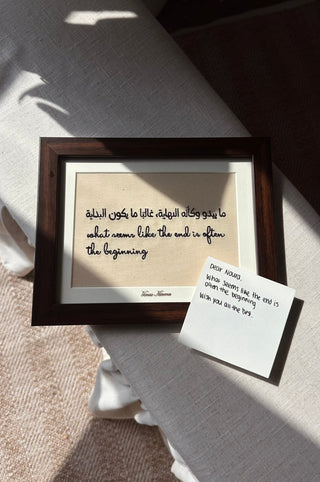 ما يبدو وكأنه النهاية، غالبًا ما يكون البداية
what seems like the end is often
the beginning
Dear Noura,
What seems like the end is
often the beginning
Wish you all the best.